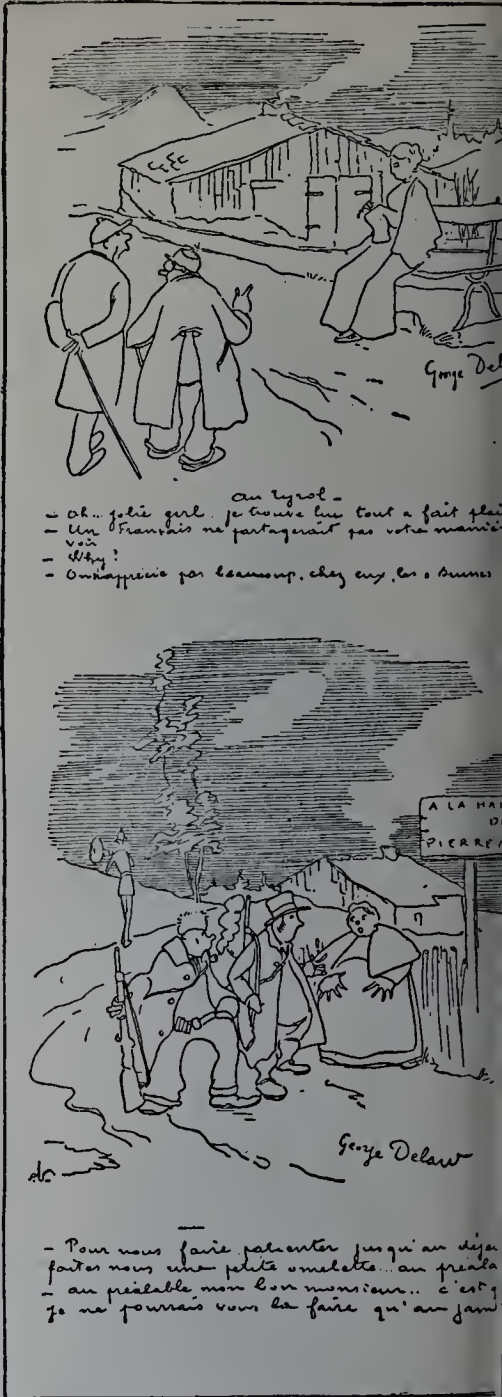 George Del
au Tyrol –
– Oh.. jolie girl. je trouve lui tout a fait plai
– Un Français ne partagerait pas votre maniè
voir
– Why?
– On n'apprécie pas beaucoup, chez eux, les « Brunes
A LA HAL
DE
PIERRE
George Delaw
– Pour nous faire patienter jusqu'au déje
faites nous une petite omelette.. au préala
– au préalable, mon bon monsieur.. c'est q
je ne pourrais vous la faire qu'au jam